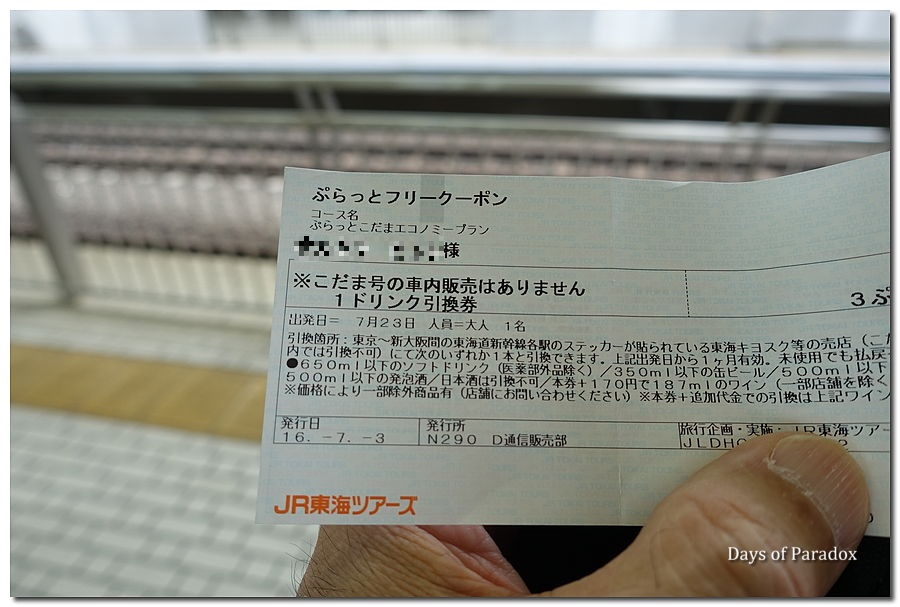 ぷらっとフリークーポン
コース名
ぷらっとこだまエコノミープラン
様
※こだま号の車内販売はありません
1ドリンク引換券
3ぷ
出発日= 7月23日 人員=大人 1名
引換箇所:東京~新大阪間の東海道新幹線各駅のステッカーが貼られている東海キヨスク等の売店(こだ
内では引換不可)にて次のいずれか1本と引換できます。上記出発日から1ヶ月有効。未使用でも払戻
●650ml以下のソフトドリンク(医薬部外品除く)/350ml以下の缶ビール/500ml以下
500ml以下の発泡酒/日本酒は引換不可/本券+170円で187mlのワイン(一部店舗を除く
※価格により一部除外商品有(店舗にお問い合わせください)※本券+追加代金での引換は上記ワイン
発行日 発行所 旅行企画・実施:JR東海ツアー
16.-7.-3 N290 D通信販売部
JR東海ツアーズ
Days of Paradox